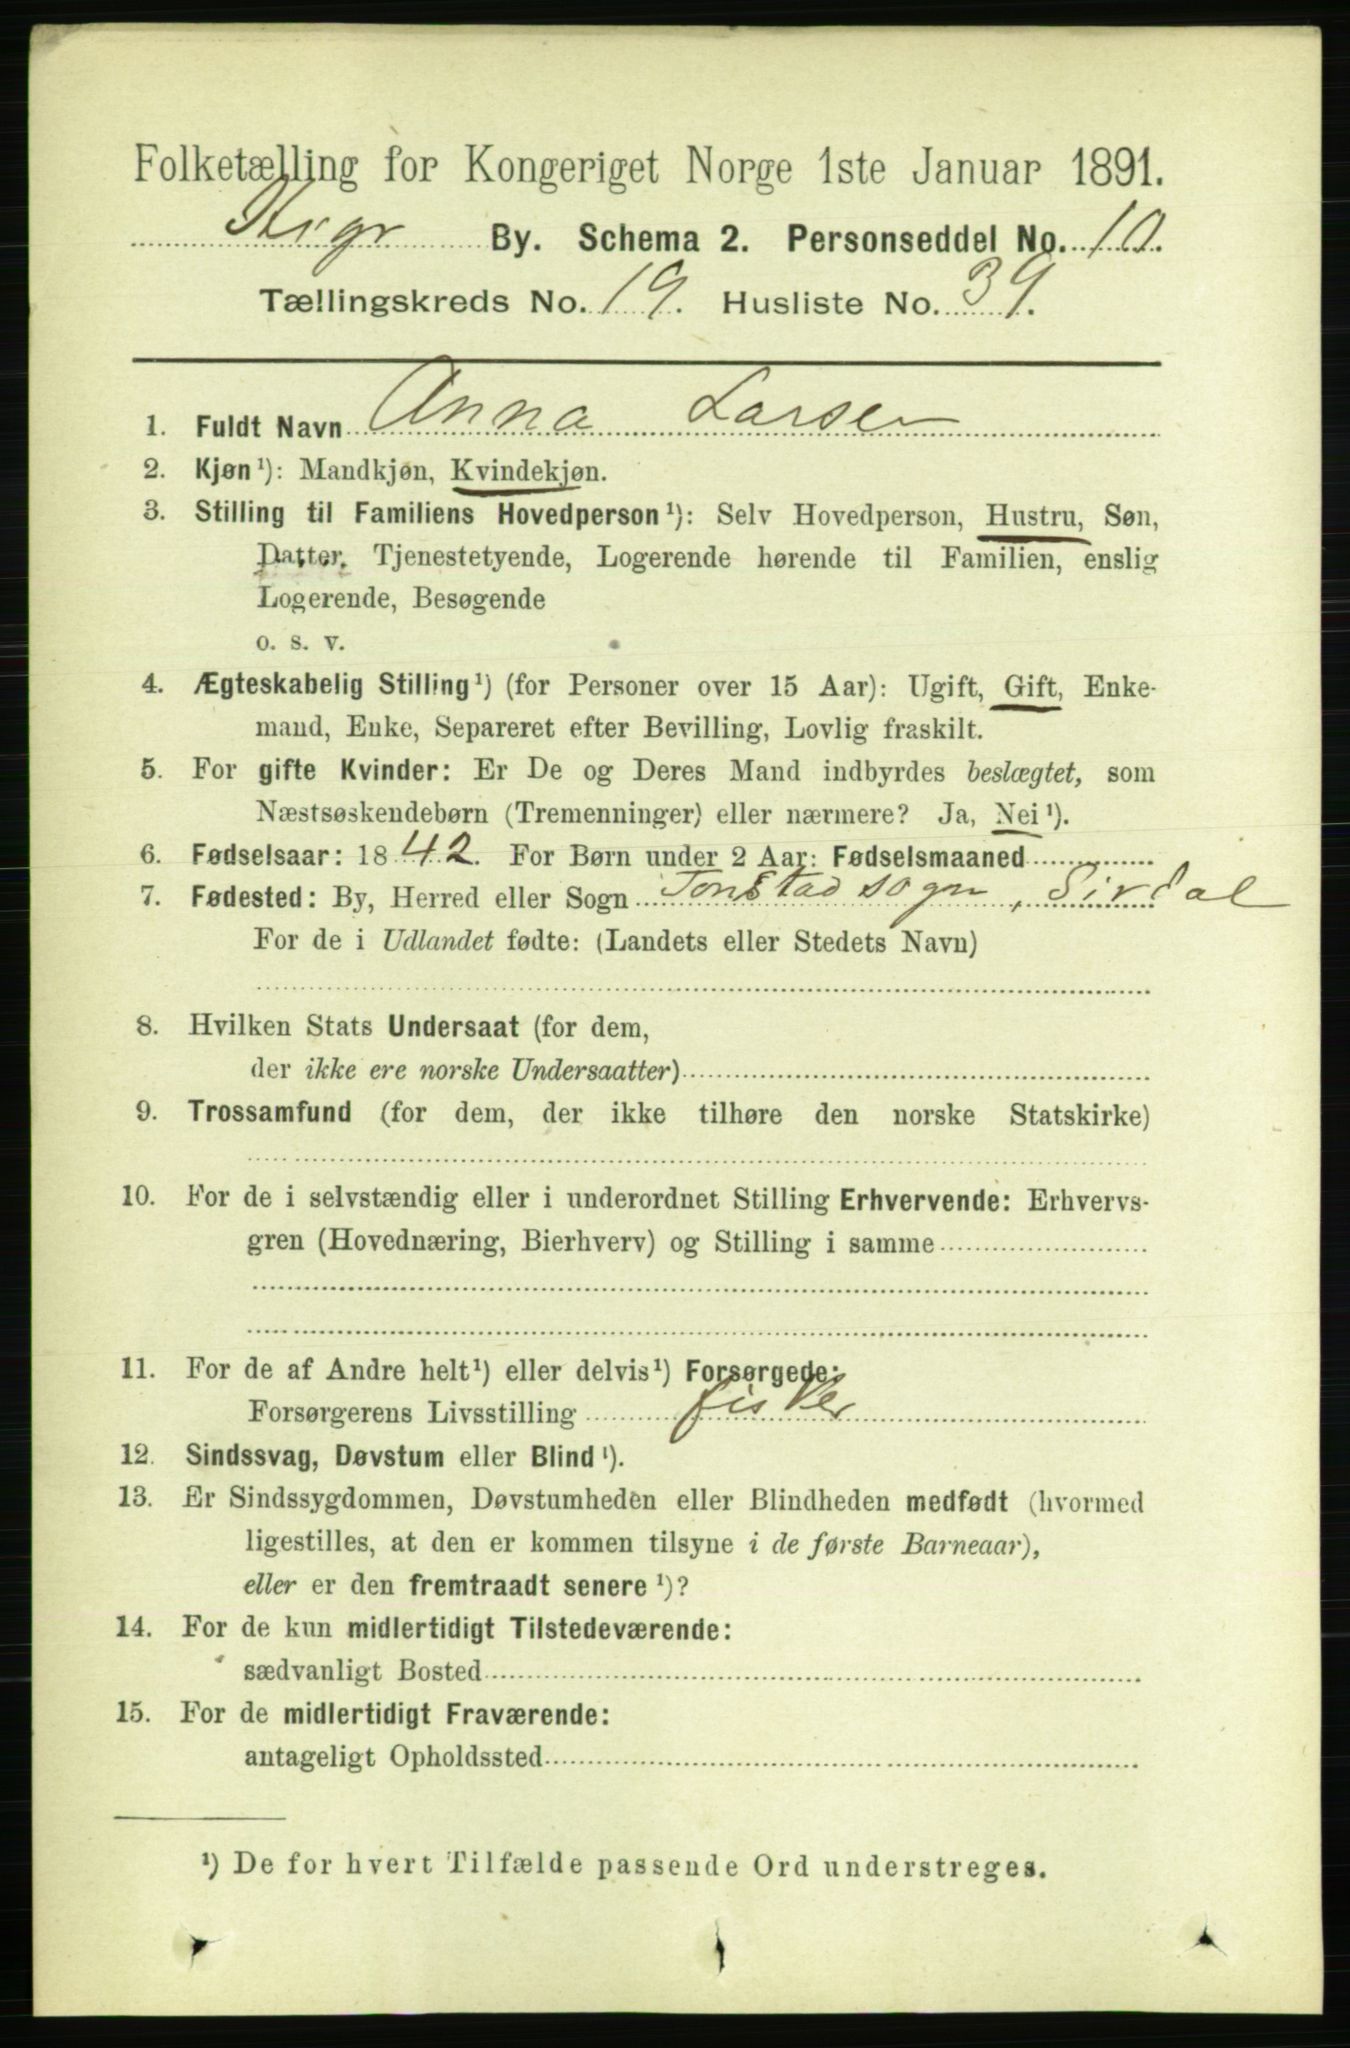 Folketælling for Kongeriget Norge 1ste Januar 1891.
By. Schema 2. Personseddel No. 10.
Tællingskreds No. 19. Husliste No. 39.
1. Fuldt Navn Anna Larsen
2. Kjøn¹): Mandkjøn, Kvindekjøn.
3. Stilling til Familiens Hovedperson¹): Selv Hovedperson, Hustru, Søn,
Datter, Tjenestetyende, Logerende hørende til Familien, enslig
Logerende, Besøgende
o. s. v.
4. Ægteskabelig Stilling¹) (for Personer over 15 Aar): Ugift, Gift, Enke-
mand, Enke, Separeret efter Bevilling, Lovlig fraskilt.
5. For gifte Kvinder: Er De og Deres Mand indbyrdes beslægtet, som
Næstsøskendebørn (Tremenninger) eller nærmere? Ja, Nei¹).
6. Fødselsaar: 1842. For Børn under 2 Aar: Fødselsmaaned
7. Fødested: By, Herred eller Sogn Tonstad sogn, Sirdal
For de i Udlandet fødte: (Landets eller Stedets Navn)
8. Hvilken Stats Undersaat (for dem,
der ikke ere norske Undersaatter)
9. Trossamfund (for dem, der ikke tilhøre den norske Statskirke)
10. For de i selvstændig eller i underordnet Stilling Erhvervende: Erhvervs-
gren (Hovednæring, Bierhverv) og Stilling i samme
11. For de af Andre helt¹) eller delvis¹) Forsørgede:
Forsørgerens Livsstilling fisker
12. Sindssvag, Døvstum eller Blind¹).
13. Er Sindssygdommen, Døvstumheden eller Blindheden medfødt (hvormed
ligestilles, at den er kommen tilsyne i de første Barneaar),
eller er den fremtraadt senere¹)?
14. For de kun midlertidigt Tilstedeværende:
sædvanligt Bosted
15. For de midlertidigt Fraværende:
antageligt Opholdssted
¹) De for hvert Tilfælde passende Ord understreges.